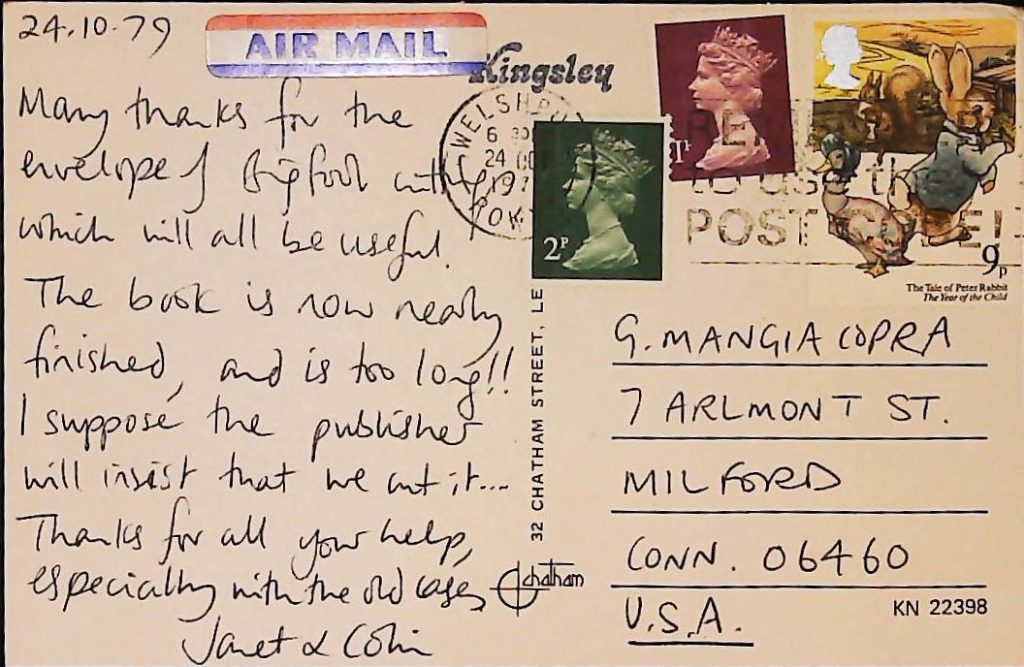 24.10.79
AIR MAIL
Many thanks for the
envelope of Bigfoot cuttings
which will all be useful.
The book is now nearly
finished, and is too long!!
I suppose the publisher
will insist that we cut it...
Thanks for all your help,
especially with the old cases,
Janet & Colin
Kingsley
WELSHPOOL
6 30
24 OC
197
POWYS
2P
1P
to use the
POSTCODE!
9p
The Tale of Peter Rabbit
The Year of the Child
32 CHATHAM STREET, LE
chatham
G. MANGIACOPRA
7 ARLMONT ST.
MILFORD
CONN. 06460
U.S.A.
KN 22398